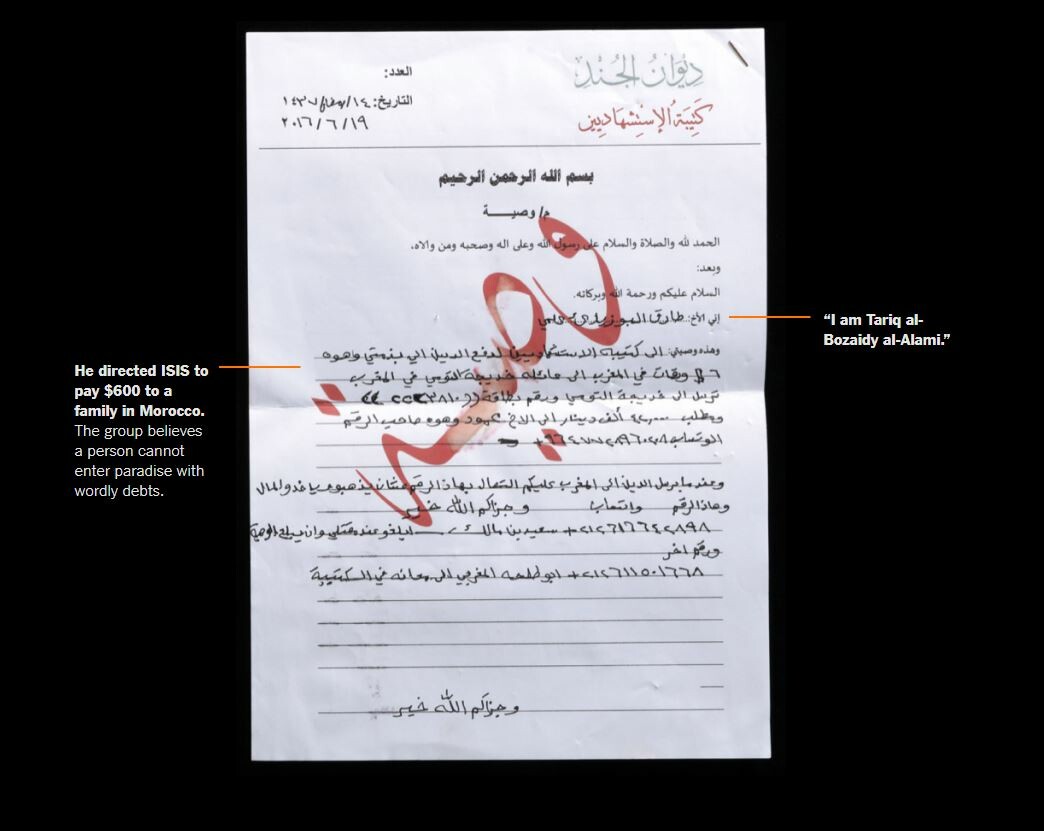 ديوان الجند
كتيبة الإستشهاديين
العدد:
التاريخ: ١٤/رمضان/١٤٣٧
٢٠١٦/٦/١٩
بسم الله الرحمن الرحيم
م/ وصيـــــة
وصية
الحمد لله والصلاة والسلام على رسول الله وعلى اله وصحبه ومن والاه.
وبعد:
السلام عليكم ورحمة الله وبركاته.
إني الأخ: طارق
وهذه وصيتي: الى كتيبة الاستشهاديين لدفع الدين الي بذمتي وهوه
في المغرب الى عائلة خديجة التومي في المغرب
خديجة التومي ورقم بطاقة
ألف دينار الى الاخ وهوه صاحب الرقم
وعندما يرسل الدين الى المغرب عليكم بهاذا الرقم
وهاذا الرقم وجزاكم الله خير
سعيد بن مالك
ورقم اخر
+٢١٢٦١١٥٠١٦٦٨ ابو طلحه المغربي في الكتيبة
وجزاكم الله خير
He directed ISIS to
pay $600 to a
family in Morocco.
The group believes
a person cannot
enter paradise with
wordly debts.
“I am Tariq al-
Bozaidy al-Alami.”